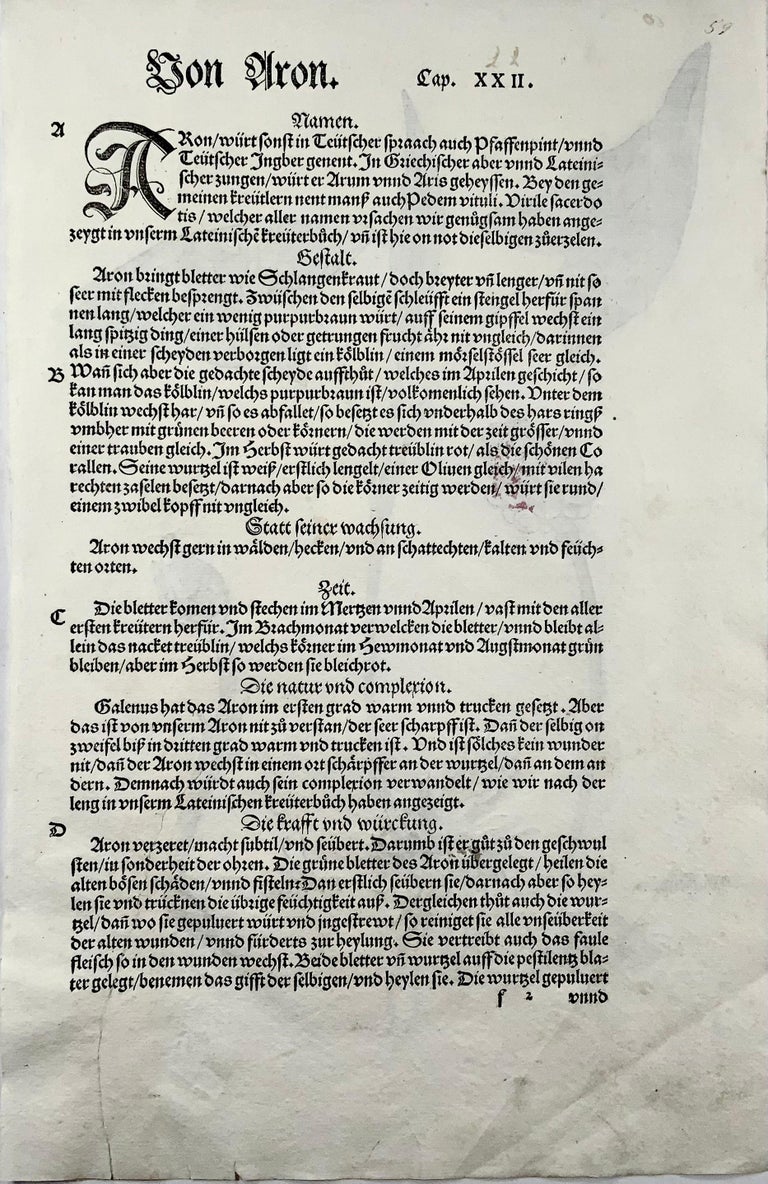 59
22
Von Aron. Cap. XXII.
A
Namen.
ARon/würt sonst in Teütscher spraach auch Pfaffenpint/vnnd
Teütscher Ingber genent. In Griechischer aber vnnd Lateini-
scher zungen/würt er Arum vnnd Aris geheyssen. Bey den ge-
meinen kreütlern nent manß auch Pedem vituli. Virile sacerdo
tis/welcher aller namen vrsachen wir genůgsam haben ange-
zeygt in vnserm Lateinischē kreüterbůch/vñ ist hie on not dieselbigen zůerzelen.
Gestalt.
Aron bringt bletter wie Schlangenkraut/doch breyter vñ lenger/vñ nit so
seer mit flecken besprengt. Zwüschen den selbigē schleüfft ein stengel herfür span
nen lang/welcher ein wenig purpurbraun würt/auff seinem gipffel wechst ein
lang spitzig ding/einer hülsen oder getrungen frucht ähr nit vngleich/darinnen
als in einer scheyden verborgen ligt ein kölblin/einem mörselstössel seer gleich.
B Wañ sich aber die gedachte scheyde auffthůt/welches im Aprilen geschicht/so
kan man das kölblin/welchs purpurbraun ist/volkomenlich sehen. Vnter dem
kölblin wechst har/vñ so es abfallet/so besetzt es sich vnderhalb des hars ringß
vmbher mit grůnen beeren oder körnern/die werden mit der zeit grösser/vnnd
einer trauben gleich. Im Herbst würt gedacht treüblin rot/als die schönen Co
rallen. Seine wurtzel ist weiß/erstlich lengelt/einer Oliuen gleich/mit vilen ha
rechten zaselen besetzt/darnach aber so die körner zeitig werden/würt sie rund/
einem zwibel kopff nit vngleich.
Statt seiner wachsung.
Aron wechst gern in wälden/hecken/vnd an schattechten/kalten vnd feüch-
ten orten.
Zeit.
C Die bletter komen vnd stechen im Mertzen vnnd Aprilen/vast mit den aller
ersten kreütern herfür. Im Brachmonat verwelcken die bletter/vnnd bleibt al-
lein das nacket treüblin/welchs körner im Hewmonat vnd Augstmonat grün
bleiben/aber im Herbst so werden sie bleichrot.
Die natur vnd complexion.
Galenus hat das Aron im ersten grad warm vnnd trucken gesetzt. Aber
das ist von vnserm Aron nit zů verstan/der seer scharpff ist. Dañ der selbig on
zweifel biß in dritten grad warm vnd trucken ist. Vnd ist sölches kein wunder
nit/dañ der Aron wechst in einem ort schärpffer an der wurtzel/dañ an dem an
dern. Demnach würdt auch sein complexion verwandelt/wie wir nach der
leng in vnserm Lateinischen kreüterbůch haben angezeigt.
D
Die krafft vnd würckung.
Aron verzeret/macht subtil/vnd seübert. Darumb ist er gůt zů den geschwul
sten/in sonderheit der ohren. Die grüne bletter des Aron übergelegt/heilen die
alten bösen schäden/vnnd fisteln: Dan erstlich seübern sie/darnach aber so hey-
len sie vnd trücknen die übrige feüchtigkeit auß. Dergleichen thůt auch die wur-
tzel/dañ wo sie gepuluert würt vnd jngestrewt/so reiniget sie alle vnseüberkeit
der alten wunden/vnnd fürderts zur heylung. Sie vertreibt auch das faule
fleisch so in den wunden wechst. Beide bletter vñ wurtzel auff die pestilentz bla-
ter gelegt/benemen das gifft der selbigen/vnd heylen sie. Die wurtzel gepuluert
f 2 vnnd